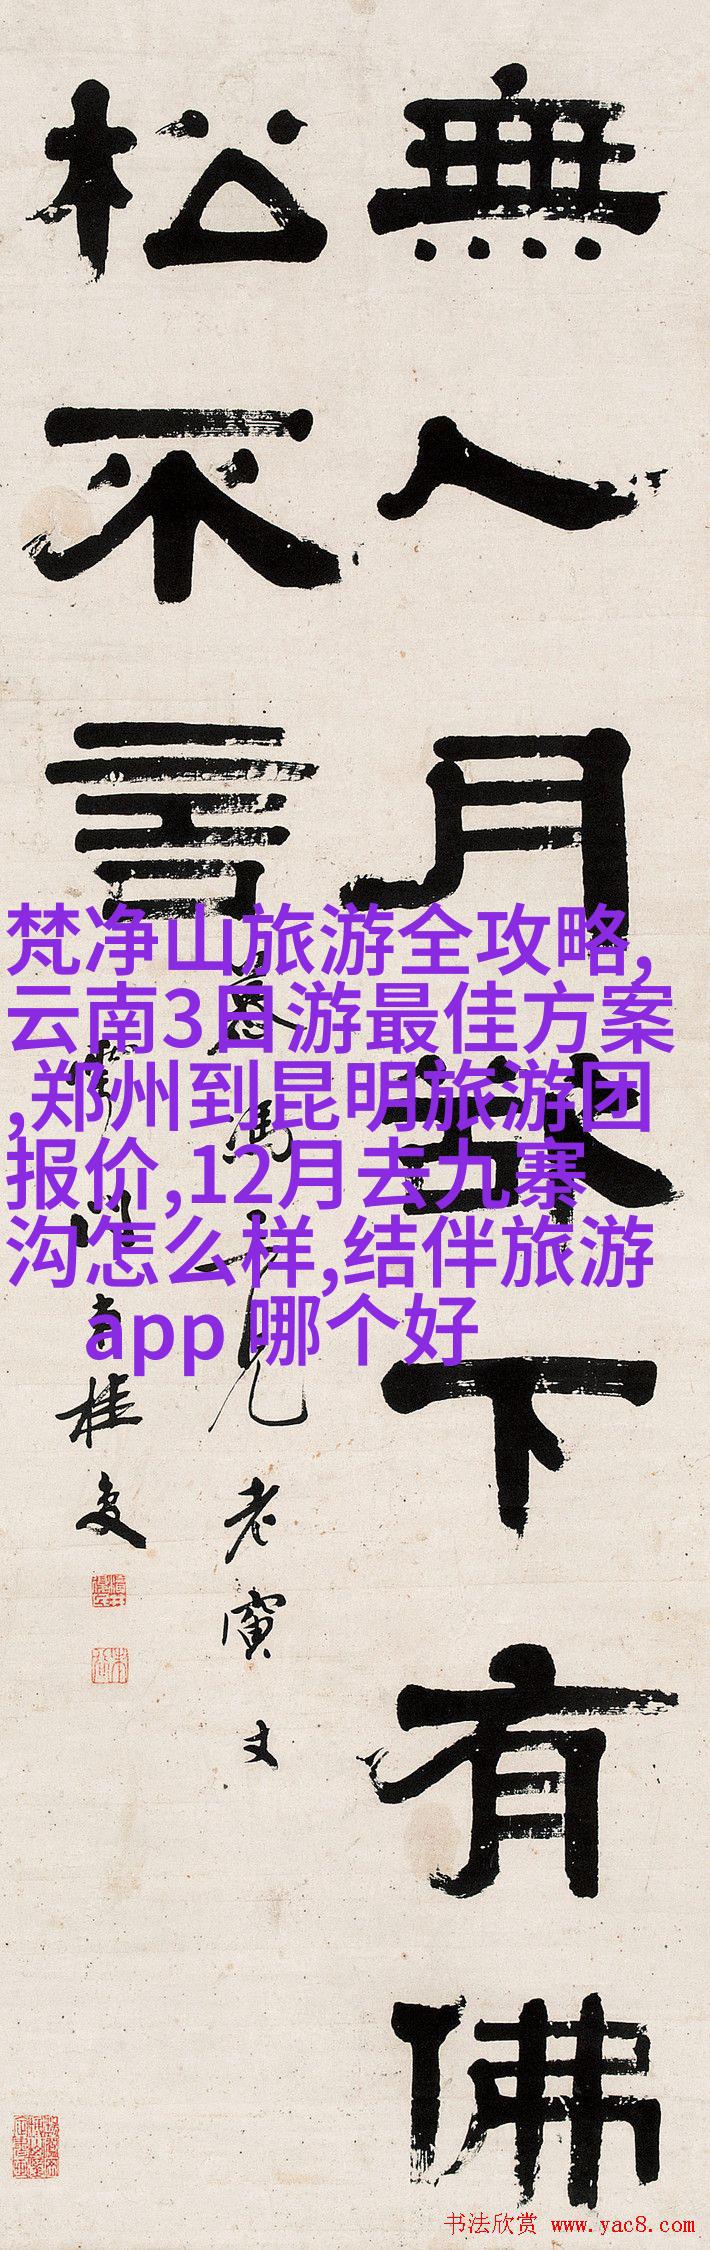 無人月鼓下有佛
松不言
慕馮大兄老寅丈
桂馥
梵净山旅游全攻略,
云南3日游最佳方案
,郑州到昆明旅游团
报价,12月去九寨
沟怎么样,结伴旅游
app 哪个好
书法欣赏 www.yac8.com